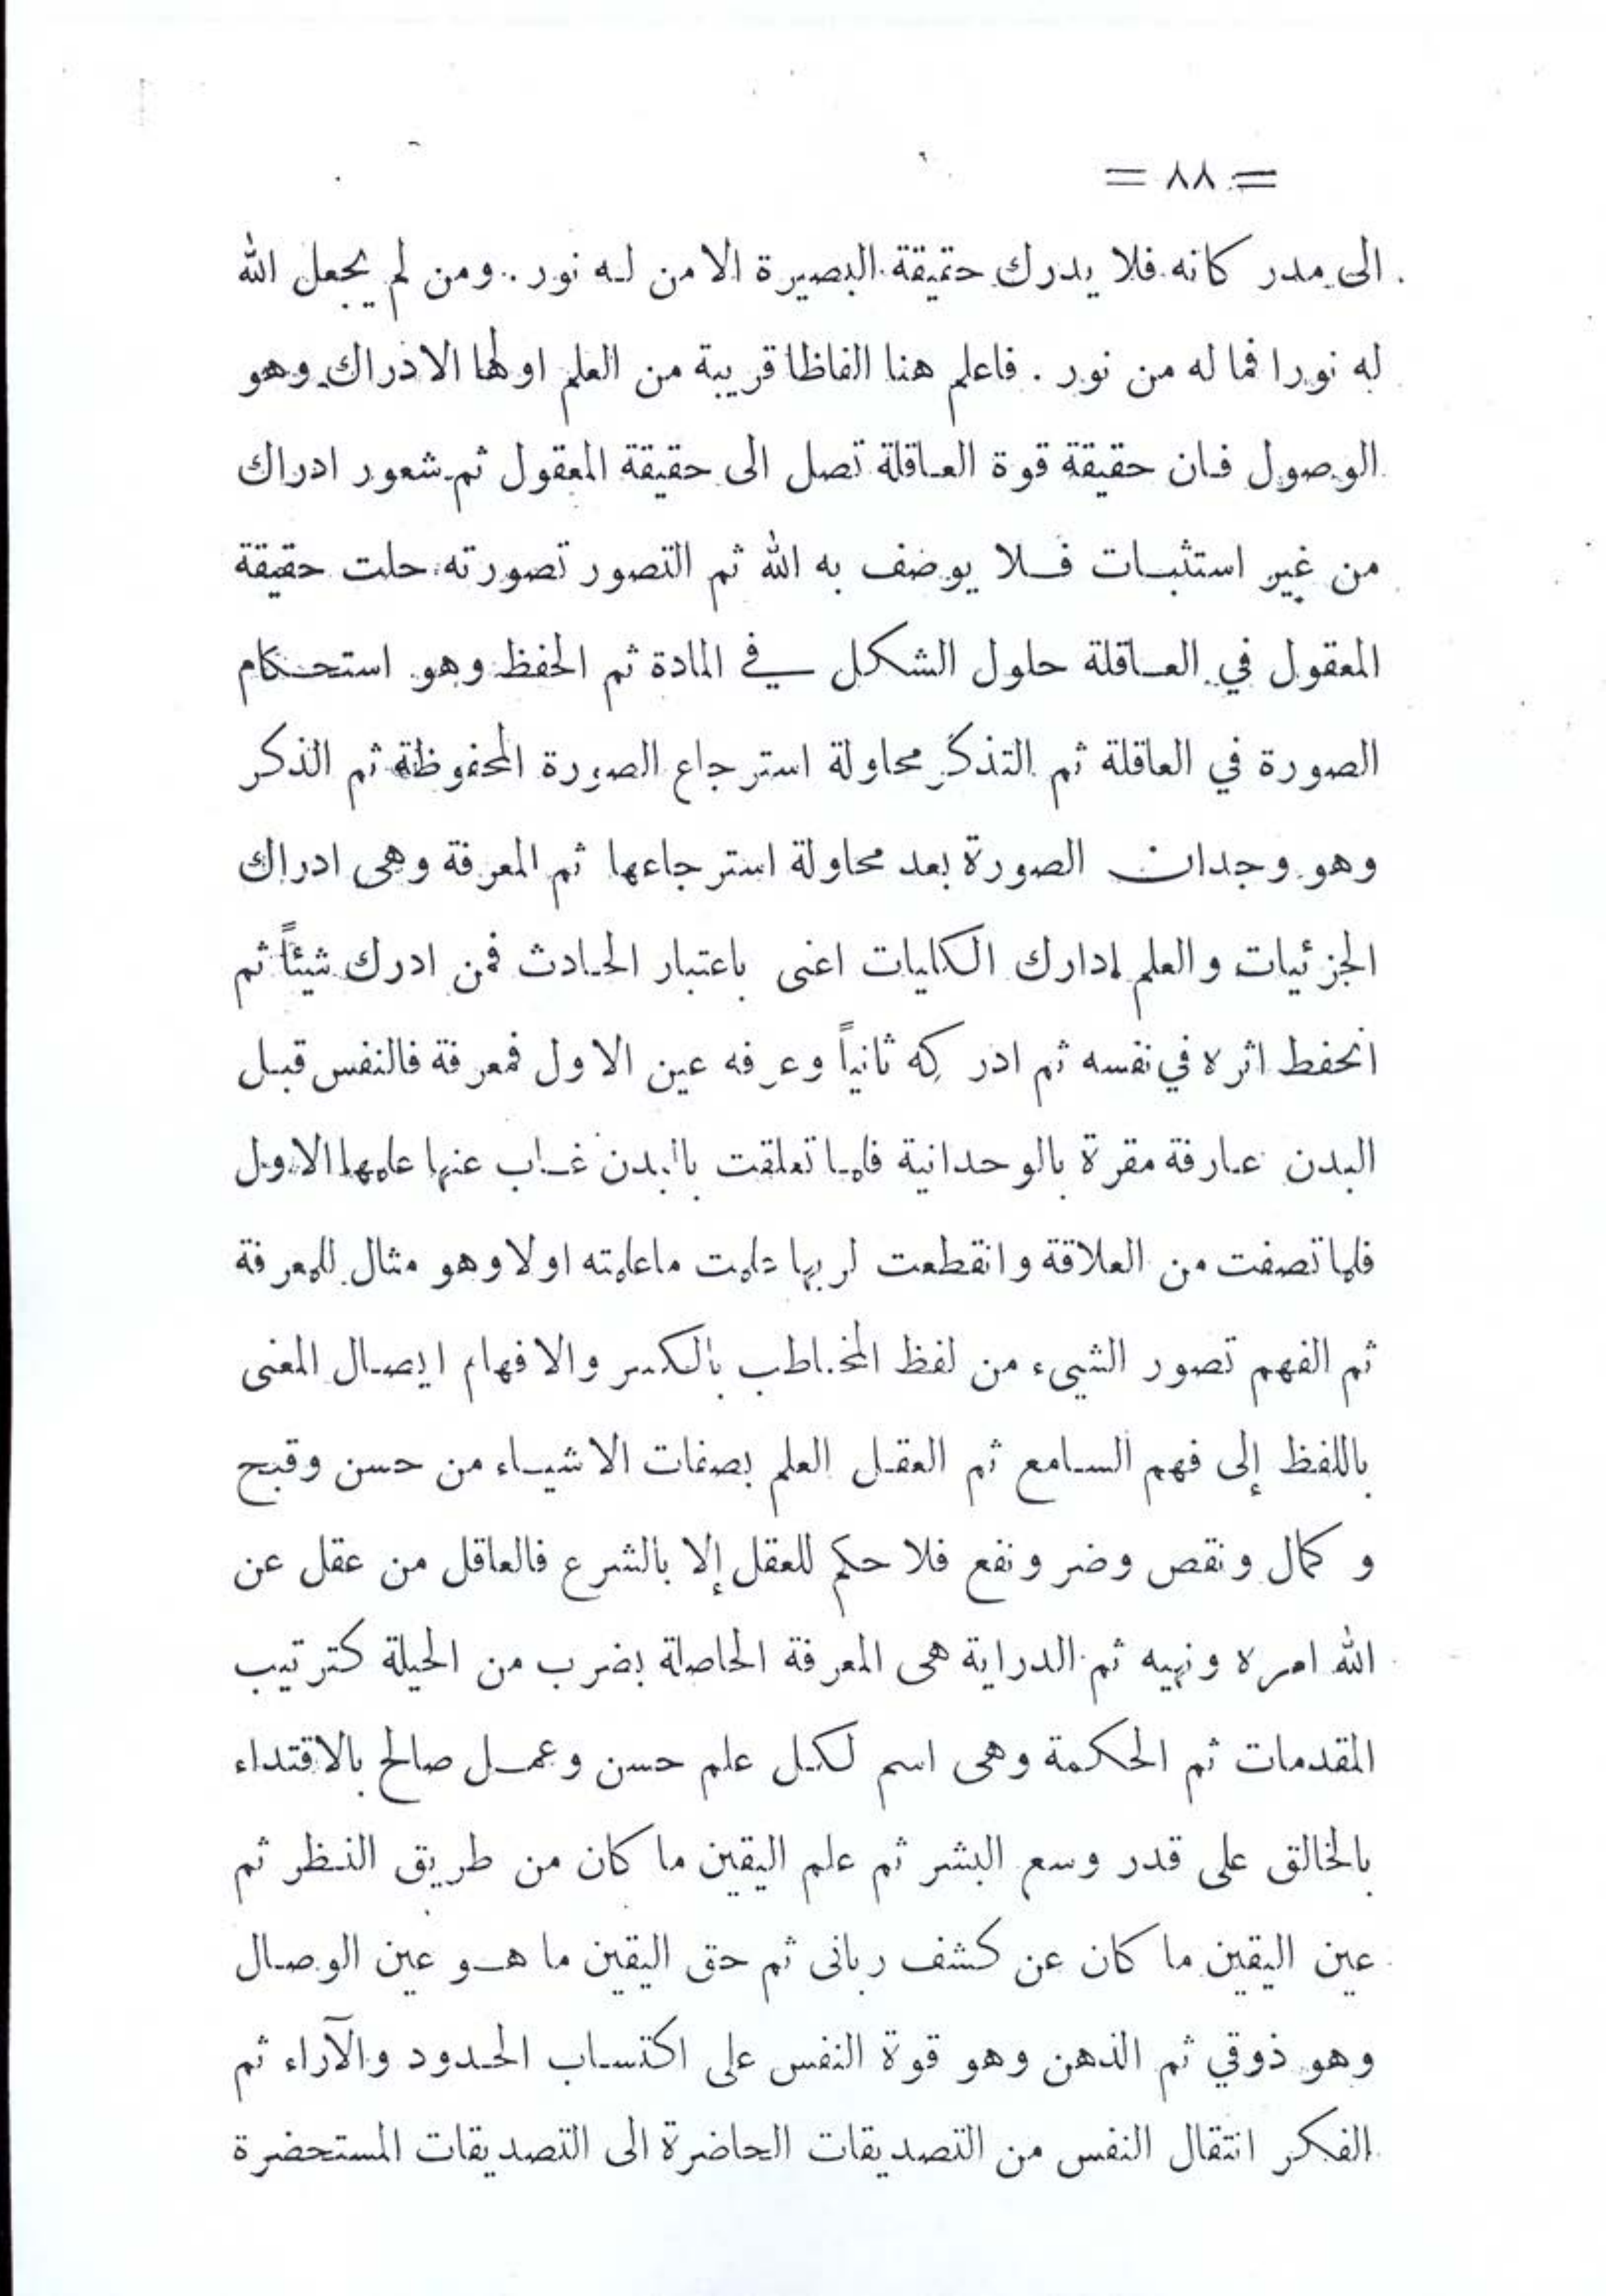 = ٨٨ =
الى مدر كانه فلا يدرك حقيقة البصيرة الا من لـه نور . ومن لم يجعل الله
له نورا فما له من نور . فاعلم هنا الفاظا قريبة من العلم اولها الادراك وهو
الوصول فـان حقيقة قوة العـاقلة تصل الى حقيقة المعقول ثم شعور ادراك
من غير استثبـات فـلا يوضف به الله ثم التصور تصورته حلت حقيقة
المعقول في العـاقلة حلول الشكل في المادة ثم الحفظ وهو استحـكام
الصورة في العاقلة ثم التذكر محاولة استرجاع الصورة المحفوظة ثم الذكر
وهو وجدان الصورة بعد محاولة استرجاعها ثم المعرفة وهى ادراك
الجزئيات والعلم ادارك الكليات اعنى باعتبار الحـادث فمن ادرك شيئاً ثم
انحفط اثره في نفسه ثم ادركه ثانياً وعرفه عين الاول فمعرفة فالنفس قبـل
البدن عـارفة مقرة بالوحدانية فلمـا تعلقت بالبدن غـاب عنها علمها الاول
فلما تصفت من العلاقة وانقطعت لربها علمت ماعلمته اولا وهو مثال للمعرفة
ثم الفهم تصور الشيىء من لفظ المخـاطب بالكسر والافهام ايصـال المعنى
باللفظ إلى فهم السـامع ثم العقـل العلم بصفات الاشيـاء من حسن وقبح
وكمال ونقص وضر ونفع فلا حكم للعقل إلا بالشرع فالعاقل من عقل عن
الله امره ونهيه ثم الدراية هى المعرفة الحاصلة بضرب من الحيلة كترتيب
المقدمات ثم الحكمة وهى اسم لكـل علم حسن وعمـل صالح بالاقتداء
بالخالق على قدر وسع البشر ثم علم اليقين ما كان من طريق النـظر ثم
عين اليقين ما كان عن كشف ربانى ثم حق اليقين ما هـو عين الوصـال
وهو ذوقي ثم الذهن وهو قوة النفس على اكتسـاب الحـدود والآراء ثم
الفكر انتقال النفس من التصديقات الحاضرة الى التصديقات المستحضرة